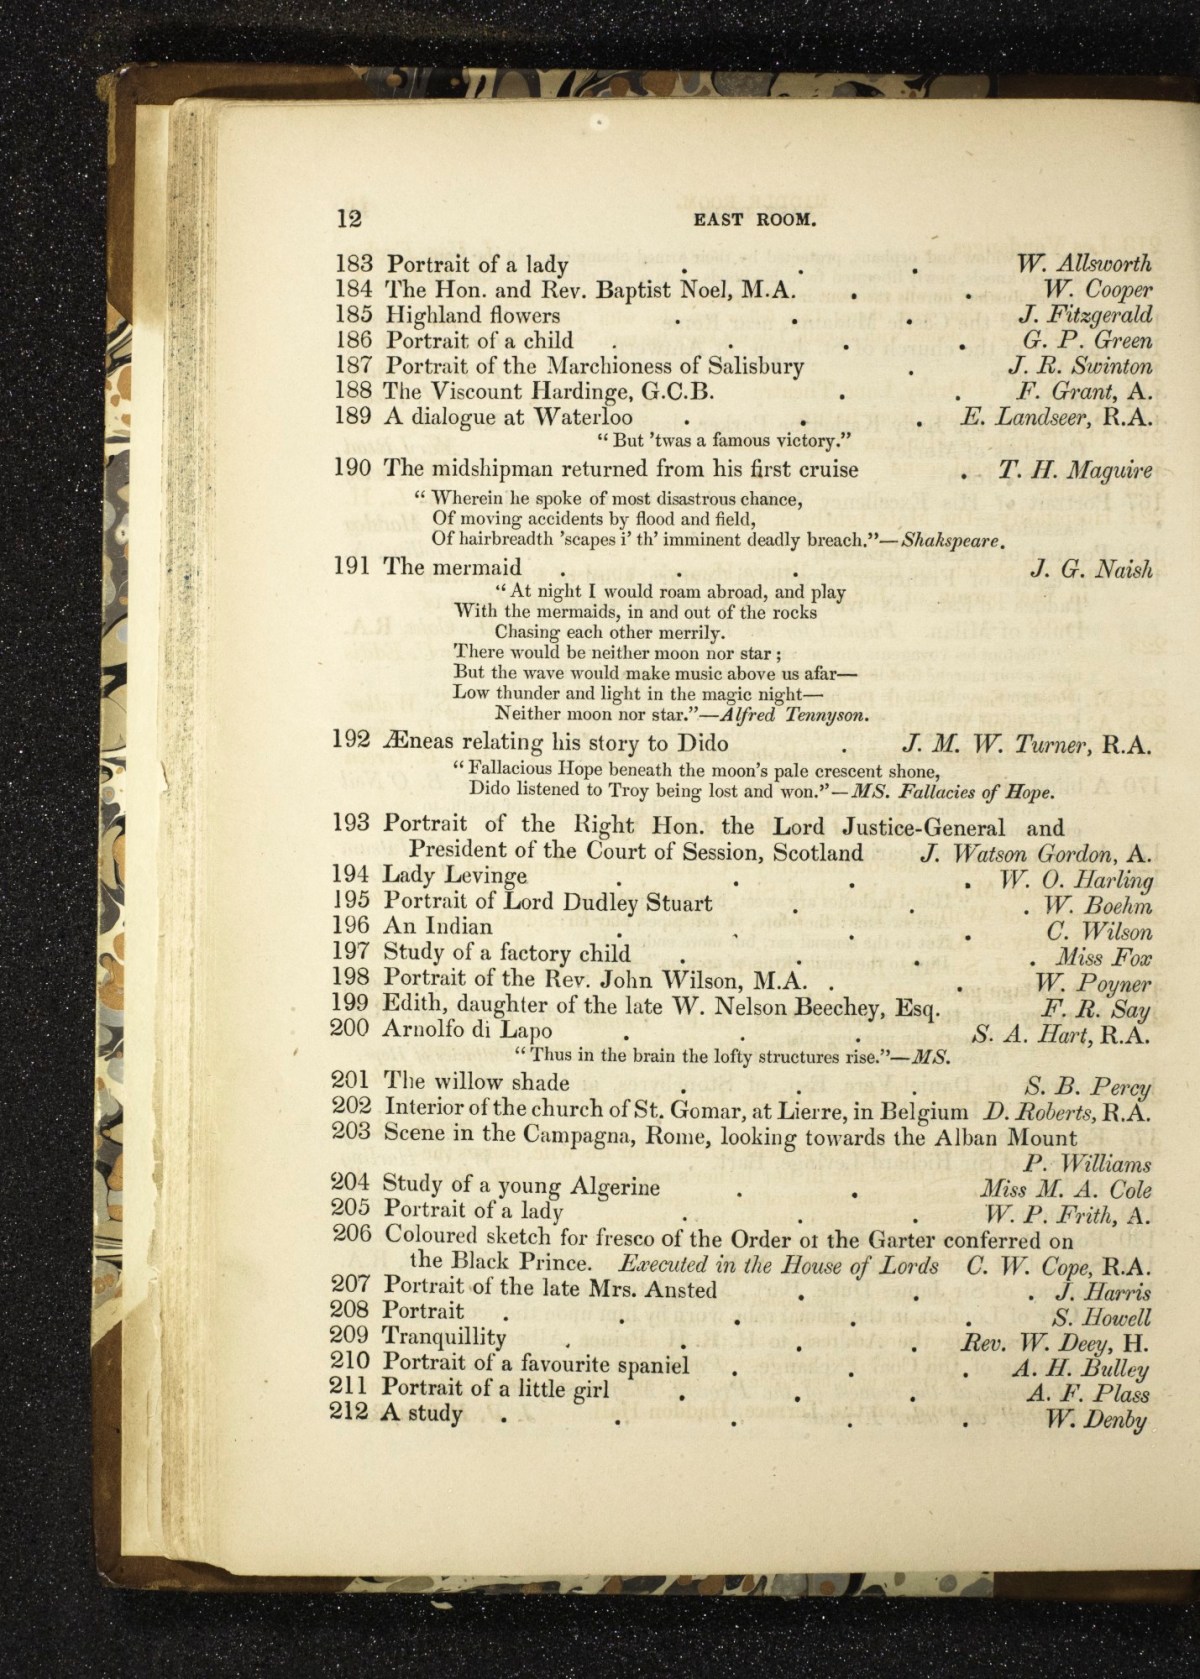 12 EAST ROOM.
183 Portrait of a lady . . . W. Allsworth
184 The Hon. and Rev. Baptist Noel, M.A. . . W. Cooper
185 Highland flowers . . . J. Fitzgerald
186 Portrait of a child . . . . G. P. Green
187 Portrait of the Marchioness of Salisbury . J. R. Swinton
188 The Viscount Hardinge, G.C.B. . . F. Grant, A.
189 A dialogue at Waterloo . . . E. Landseer, R.A.
“But ’twas a famous victory.”
190 The midshipman returned from his first cruise . T. H. Maguire
“Wherein he spoke of most disastrous chance,
Of moving accidents by flood and field,
Of hairbreadth ’scapes i’ th’ imminent deadly breach.”—Shakspeare.
191 The mermaid . . . J. G. Naish
“At night I would roam abroad, and play
With the mermaids, in and out of the rocks
Chasing each other merrily.
There would be neither moon nor star;
But the wave would make music above us afar—
Low thunder and light in the magic night—
Neither moon nor star.”—Alfred Tennyson.
192 Æneas relating his story to Dido . J. M. W. Turner, R.A.
“Fallacious Hope beneath the moon’s pale crescent shone,
Dido listened to Troy being lost and won.”—MS. Fallacies of Hope.
193 Portrait of the Right Hon. the Lord Justice-General and
President of the Court of Session, Scotland J. Watson Gordon, A.
194 Lady Levinge . . . . W. O. Harling
195 Portrait of Lord Dudley Stuart . . . W. Boehm
196 An Indian . . . . C. Wilson
197 Study of a factory child . . . . Miss Fox
198 Portrait of the Rev. John Wilson, M.A. . . W. Poyner
199 Edith, daughter of the late W. Nelson Beechey, Esq. F. R. Say
200 Arnolfo di Lapo . . . S. A. Hart, R.A.
“Thus in the brain the lofty structures rise.”—MS.
201 The willow shade . . . S. B. Percy
202 Interior of the church of St. Gomar, at Lierre, in Belgium D. Roberts, R.A.
203 Scene in the Campagna, Rome, looking towards the Alban Mount
P. Williams
204 Study of a young Algerine . . Miss M. A. Cole
205 Portrait of a lady . . . W. P. Frith, A.
206 Coloured sketch for fresco of the Order of the Garter conferred on
the Black Prince. Executed in the House of Lords C. W. Cope, R.A.
207 Portrait of the late Mrs. Ansted . . . J. Harris
208 Portrait . . . . . S. Howell
209 Tranquillity . . . . Rev. W. Deey, H.
210 Portrait of a favourite spaniel . . . A. H. Bulley
211 Portrait of a little girl . . . A. F. Plass
212 A study . . . . . W. Denby